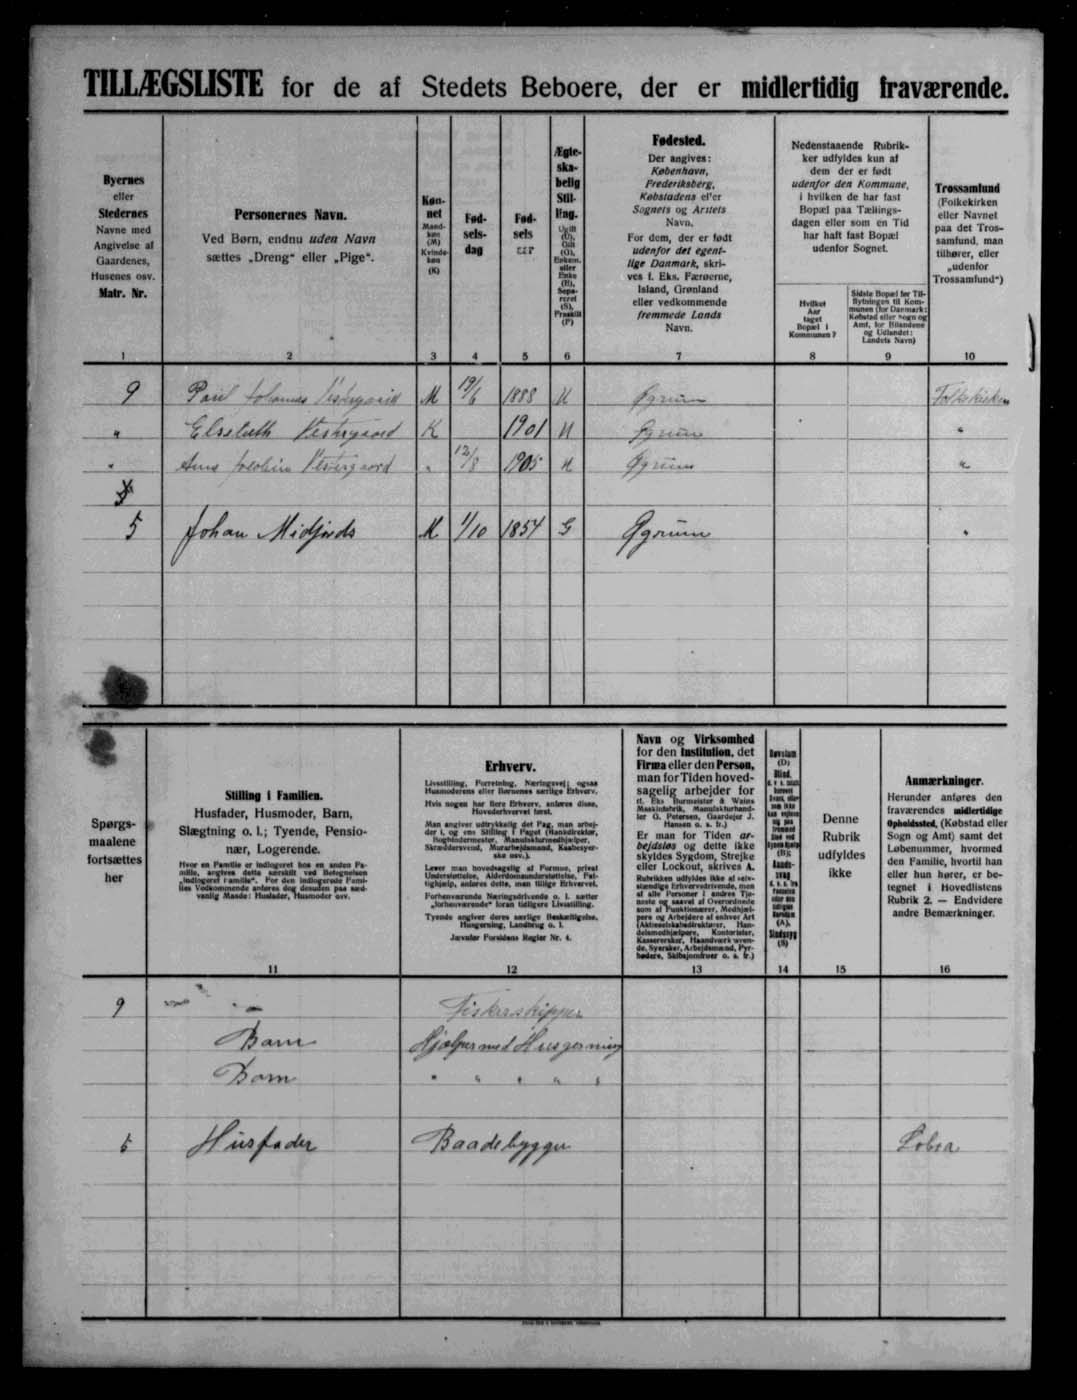 TILLÆGSLISTE for de af Stedets Beboere, der er midlertidig fraværende.
Byernes
eller
Stedernes
Navne med
Angivelse af
Gaardenes,
Husenes osv.
Matr. Nr.
Personernes Navn.
Ved Børn, endnu uden Navn
sættes „Dreng“ eller „Pige“.
Køn-
net
Mand-
køn
(M)
Kvinde-
køn
(K)
Fød-
sels-
dag
Fød-
sels
Ægte-
ska-
belig
Stil-
ling.
Ugift
(U),
Gift
(G),
Enkem.
eller
Enke
(E),
Sepa-
reret
(S),
Fraskilt
(F)
Fødested.
Der angives:
København,
Frederiksberg,
Købstadens el'er
Sognets og Amtets
Navn.
For dem, der er født
udenfor det egent-
lige Danmark, skri-
ves f. Eks. Færøerne,
Island, Grønland
eller vedkommende
fremmede Lands
Navn.
Nedenstaaende Rubrik-
ker udfyldes kun af
dem der er født
udenfor den Kommune,
i hvilken de har fast
Bopæl paa Tællings-
dagen eller som en Tid
har haft fast Bopæl
udenfor Sognet.
Hvilket
Aar
taget
Bopæl i
Kommunen?
Sidste Bopæl før Til-
flytningen til Kom-
munen (for Danmark:
Købstad eller Sogn og
Amt, for Bilandene
og Udlandet:
Landets Navn)
Trossamfund
(Folkekirken
eller Navnet
paa det Tros-
samfund, man
tilhører, eller
„udenfor
Trossamfund“)
1 2 3 4 5 6 7 8 9 10
9 Johannes Vestergaard M 19/6 1888 U Øgrum Folkekirken
„ Elsebeth Vestergaard K 1901 U Øgrum „
„ Vestergaard „ 12/8 1905 U Øgrum „
5 Johan Midjords M 1/10 1854 G Øgrum „
Spørgs-
maalene
fortsættes
her
Stilling i Familien.
Husfader, Husmoder, Barn,
Slægtning o. l.; Tyende, Pensio-
nær, Logerende.
Hvor en Familie er indlogeret hos en anden Fa-
milie, angives dette særskilt ved Betegnelsen
„indlogeret Familie“. For den indlogerede Fami-
lies Vedkommende anføres dog desuden paa sæd-
vanlig Maade: Husfader, Husmoder osv.
Erhverv.
Livsstilling, Forretning, Næringsvej; ogsaa
Husmoderens eller Børnenes særlige Erhverv.
Hvis nogen har flere Erhverv, anføres disse,
Hovederhvervet først.
Man angiver udtrykkelig det Fag, man arbej-
der i, og ens Stilling i Faget (Bankdirektør,
Bogbindermester, Manufakturmedhjælper,
Skræddersvend, Murarbejdsmand, Kaabesyer-
ske osv.).
Lever man hovedsagelig af Formue, privat
Understøttelse, Alderdomsunderstøttelse, Fat-
tighjælp, anføres dette, man tillige Erhvervet.
Forhenværende Næringsdrivende o. l. sætter
„forhenværende“ foran tidligere Livsstilling.
Tyende angiver deres særlige Beskæftigelse,
Husgerning, Landbrug o. l.
Jævnfør Forsidens Regler Nr. 4.
Navn og Virksomhed
for den Institution, det
Firma eller den Person,
man for Tiden hoved-
sagelig arbejder for
(f. Eks Burmeister & Wains
Maskinfabrik, Manufakturhand-
ler G. Petersen, Gaardejer J.
Hansen o. s. fr.)
Er man for Tiden ar-
bejdsløs og dette ikke
skyldes Sygdom, Strejke
eller Lockout, skrives A.
Rubrikken udfyldes ikke af selv-
stændige Erhvervsdrivende, men
af alle Personer i andres Tje-
neste og saavel af Overordnede
som af Funktionærer, Medhjæl-
pere og Arbejdere af enhver Art
(Aktieselskabsdirektører, Han-
delsmedhjælpere, Kontorister,
Kassererske, Haandværksven-
de, Syersker, Arbejdsmænd, Fyr-
bødere, Skibsjomfruer o. s. fr.)
Døvstum
(D)
Blind,
(B);
Aands-
svag
(A),
Sindssyg
(S)
Denne
Rubrik
udfyldes
ikke
Anmærkninger.
Herunder anføres den
fraværendes midlertidige
Opholdssted, (Købstad eller
Sogn og Amt) samt det
Løbenummer, hvormed
den Familie, hvortil han
eller hun hører, er be-
tegnet i Hovedlistens
Rubrik 2. — Endvidere
andre Bemærkninger.
11 12 13 14 15 16
9 Fiskerskipper
Barn Hjælper med Husgerning
Barn „ „ „ „ „
5 Husfader Baadebygger